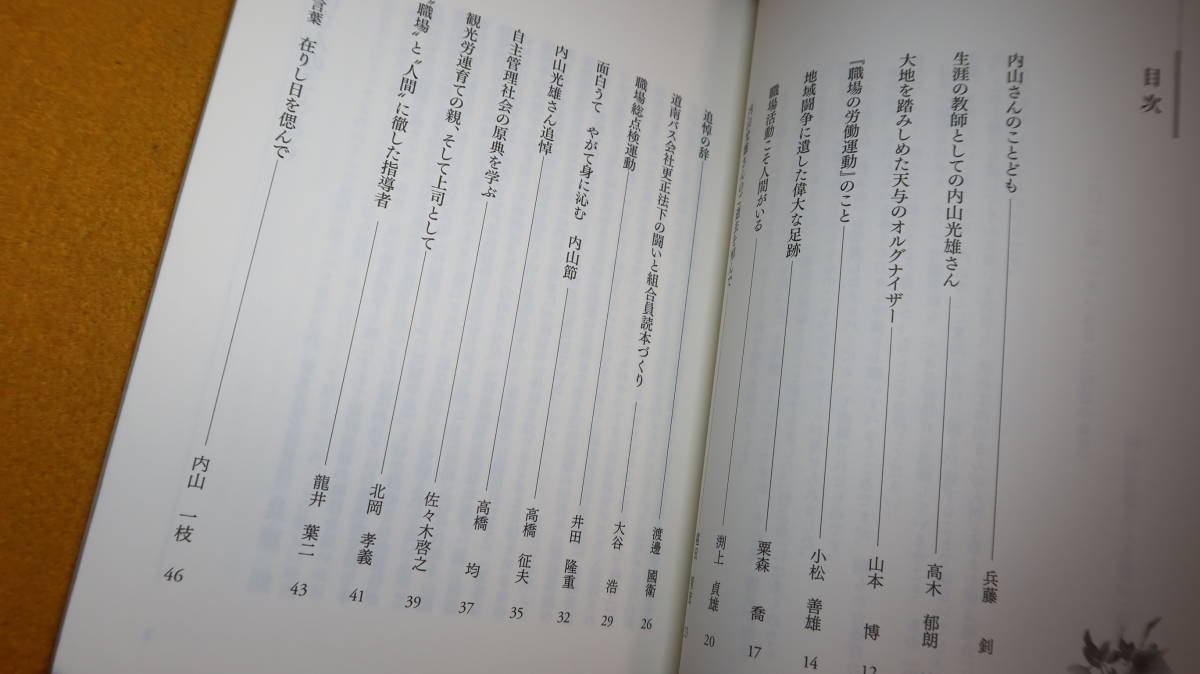 目次
内山さんのことども 兵藤 釗
生涯の教師としての内山光雄さん 高木 郁朗
大地を踏みしめた天与のオルグナイザー 山本 博 12
『職場の労働運動』のこと 小松 善雄 14
地域闘争に遺した偉大な足跡 粟森 喬 17
職場活動こそ人間がいる 渕上 貞雄 20
追悼の辞 渡邊 國衛 26
道南バス会社更正法下の闘いと組合員読本づくり 大谷 浩 29
職場総点検運動 井田 隆重 32
面白うて やがて身に沁む 内山節 高橋 征夫 35
内山光雄さん追悼 高橋 均 37
自主管理社会の原典を学ぶ 佐々木啓之 39
観光労連育ての親、そして上司として 北岡 孝義 41
〝職場〟と〝人間〟に徹した指導者 龍井 葉二 43
言葉 在りし日を偲んで 内山 一枝 46